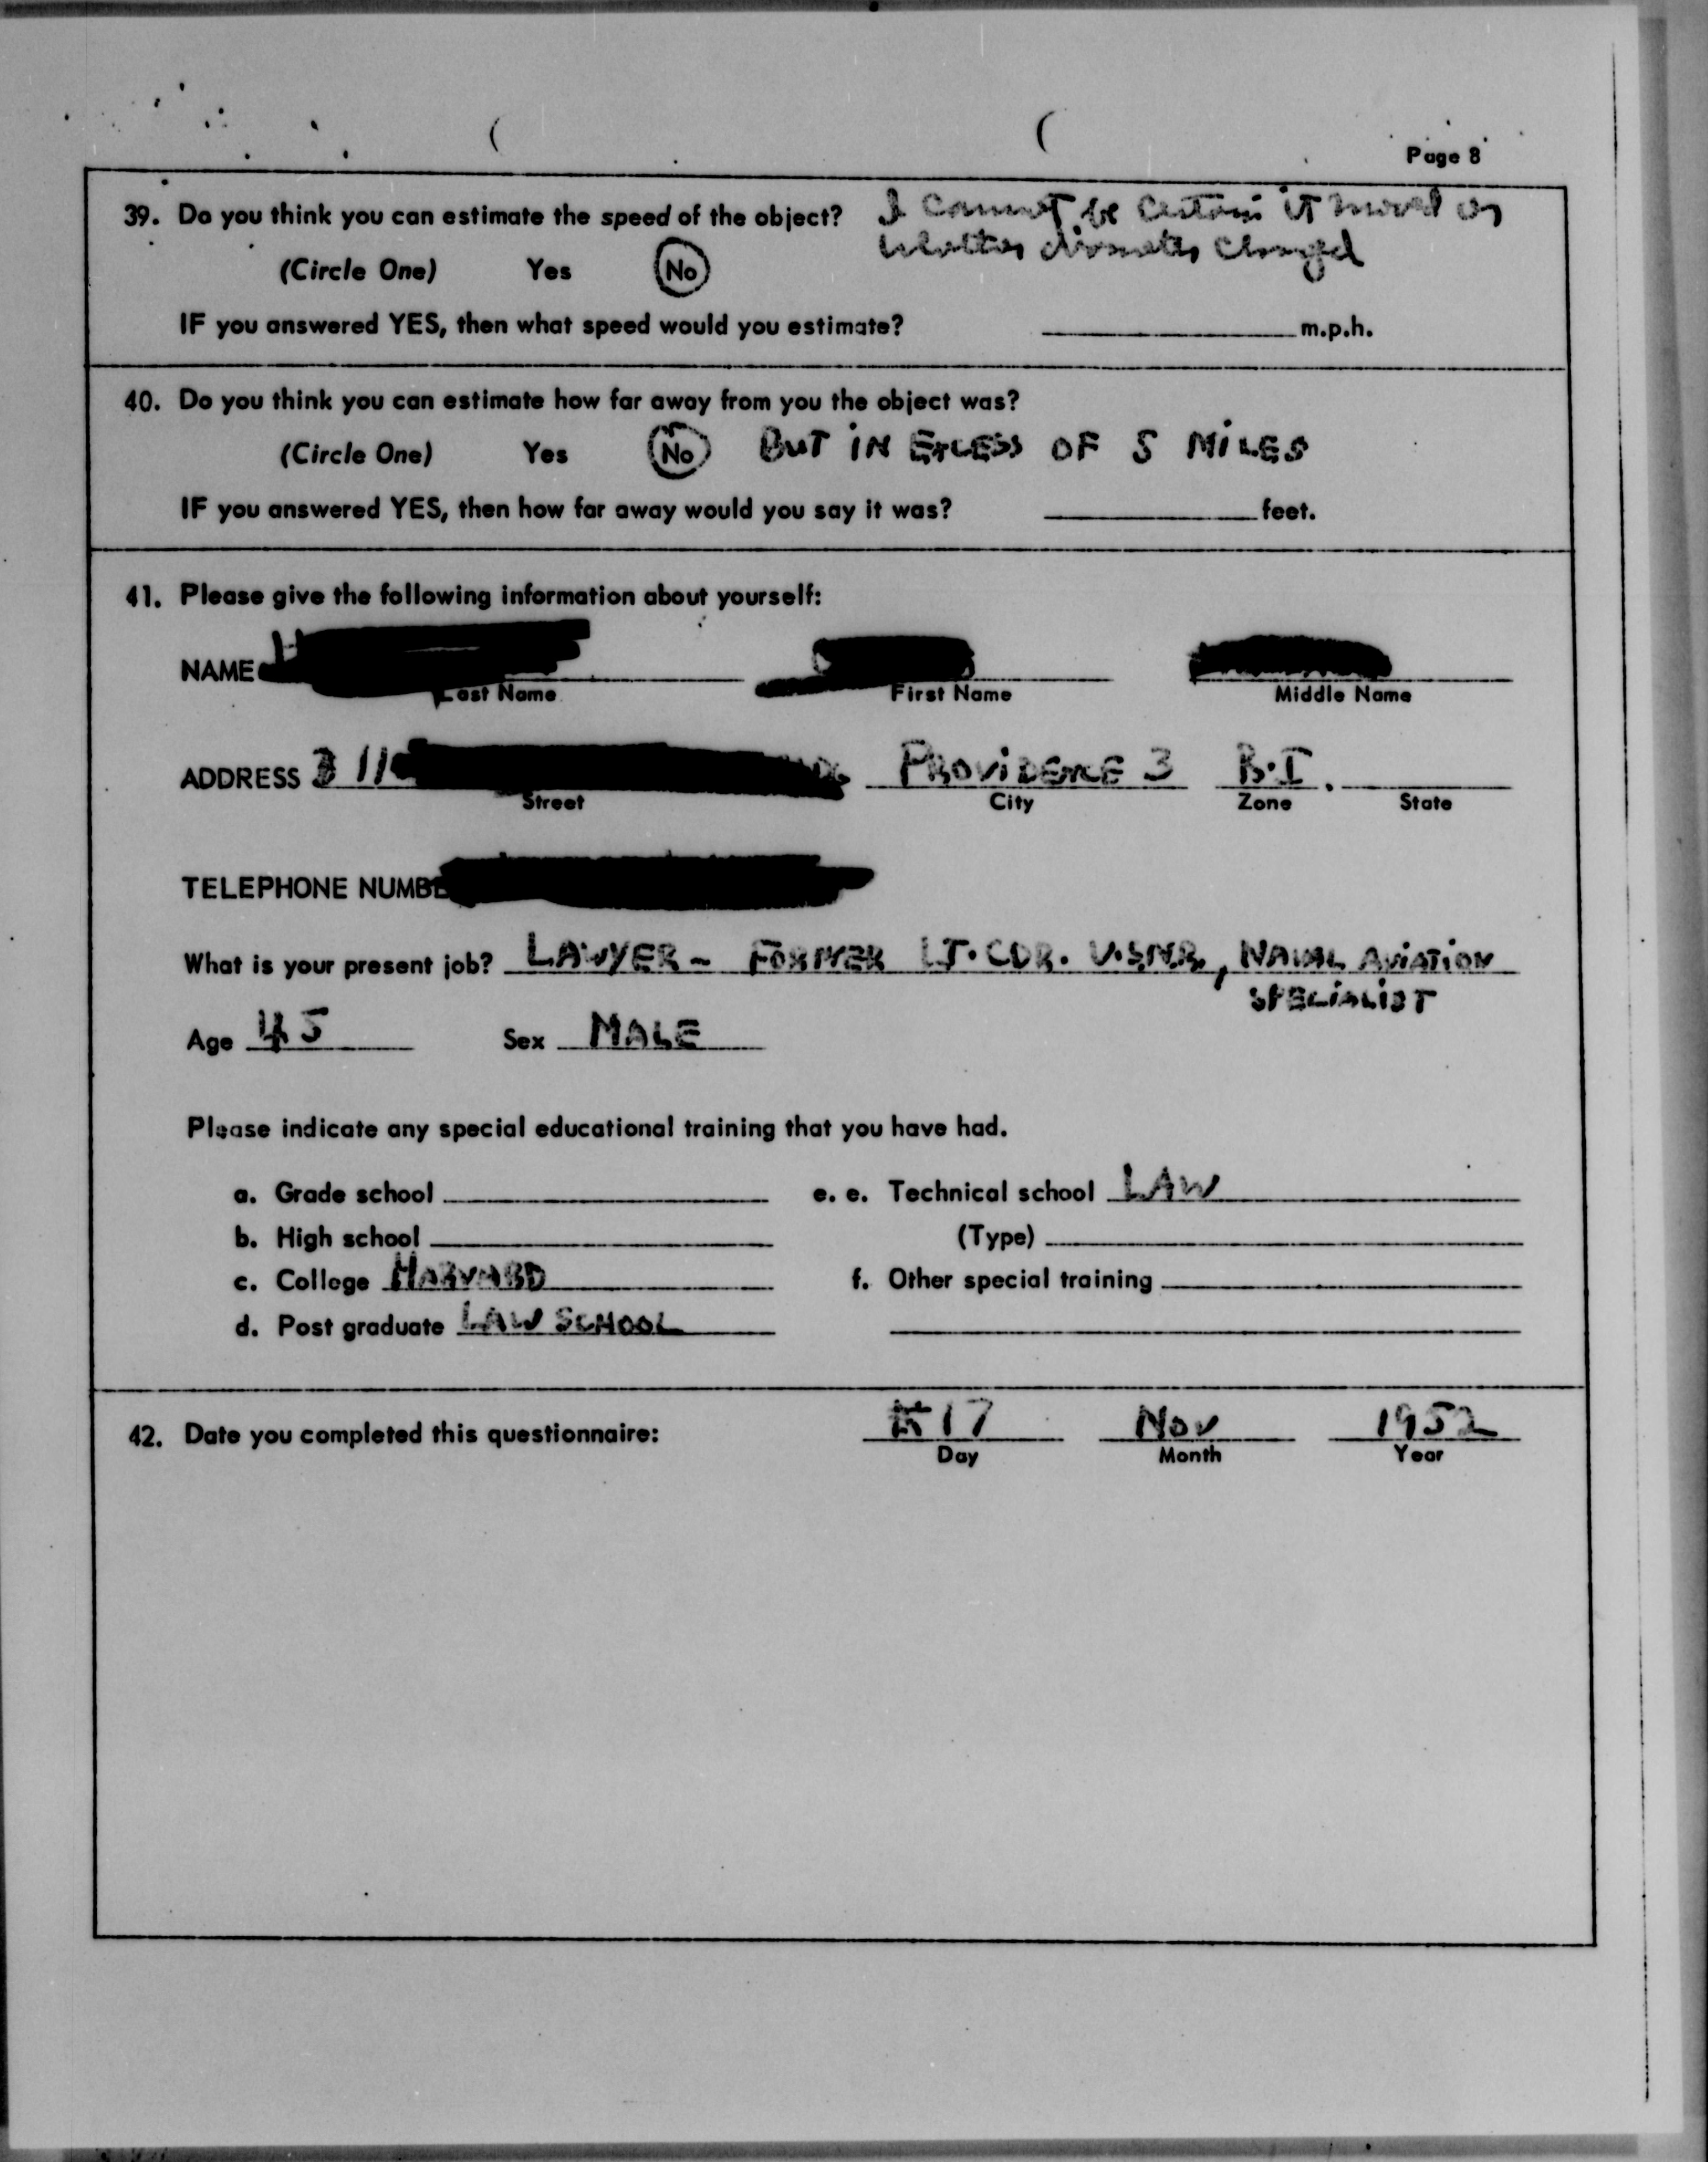 Page 8
39. Do you think you can estimate the speed of the object? I cannot be certain it moved or
whether diameter changed
(Circle One) Yes No
IF you answered YES, then what speed would you estimate? m.p.h.
40. Do you think you can estimate how far away from you the object was?
(Circle One) Yes No BUT IN EXCESS OF 5 MILES
IF you answered YES, then how far away would you say it was? feet.
41. Please give the following information about yourself:
NAME
Last Name First Name Middle Name
ADDRESS 11 PROVIDENCE 3 R.I.
Street City Zone State
TELEPHONE NUMBE
What is your present job? LAWYER - FORMER LT. CDR. U.S.N.R., NAVAL AVIATION
SPECIALIST
Age 45 Sex MALE
Please indicate any special educational training that you have had.
a. Grade school e. e. Technical school LAW
b. High school (Type)
c. College HARVARD f. Other special training
d. Post graduate LAW SCHOOL
42. Date you completed this questionnaire: 17 Nov 1952
Day Month Year